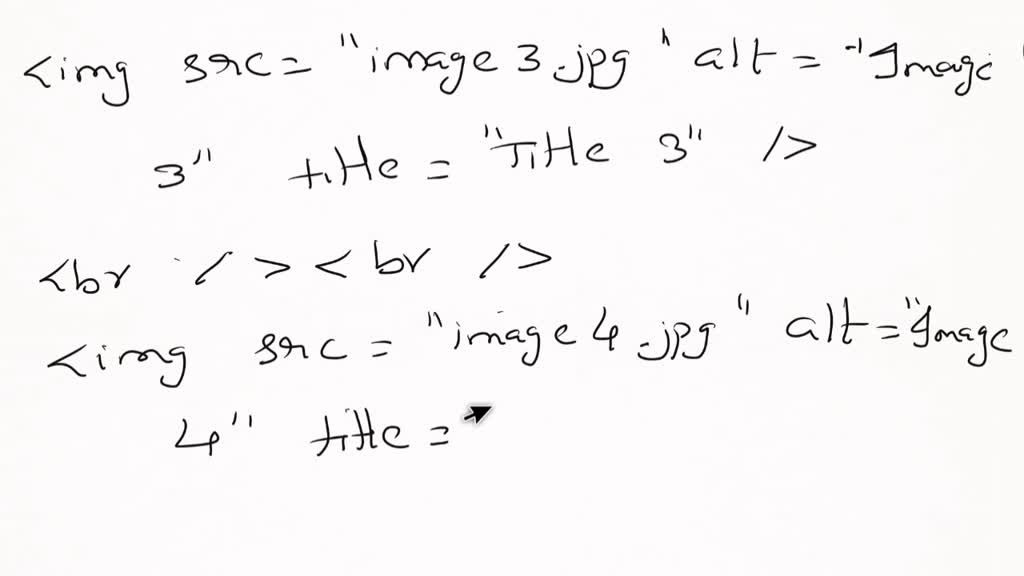 <img src= "image3.jpg" alt = "Image
3" title = "Title 3" />
<br / >< br />
<img src = "image4.jpg" alt="Image
4" title =